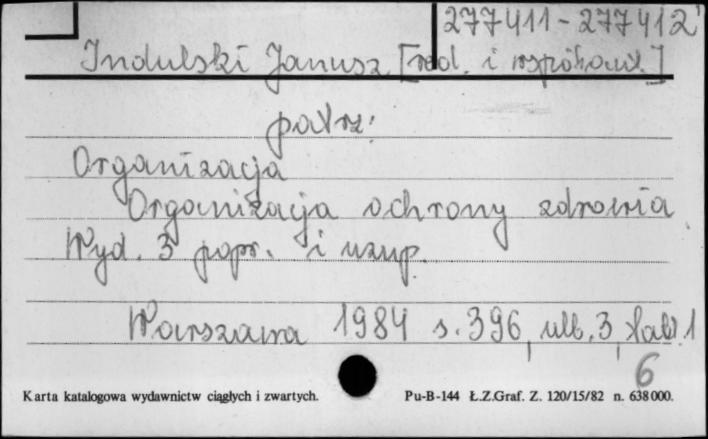 277411-277412
Indulski Janusz [red. i współaut.]
patrz:
Organizacja
Organizacja ochrony zdrowia
Wyd. 3 popr. i uzup.
Warszawa 1984 s. 396, nlb. 3, tabl. 1
6
Karta katalogowa wydawnictw ciągłych i zwartych. Pu-B-144 Ł.Z.Graf. Z. 120/15/82 n. 638000.